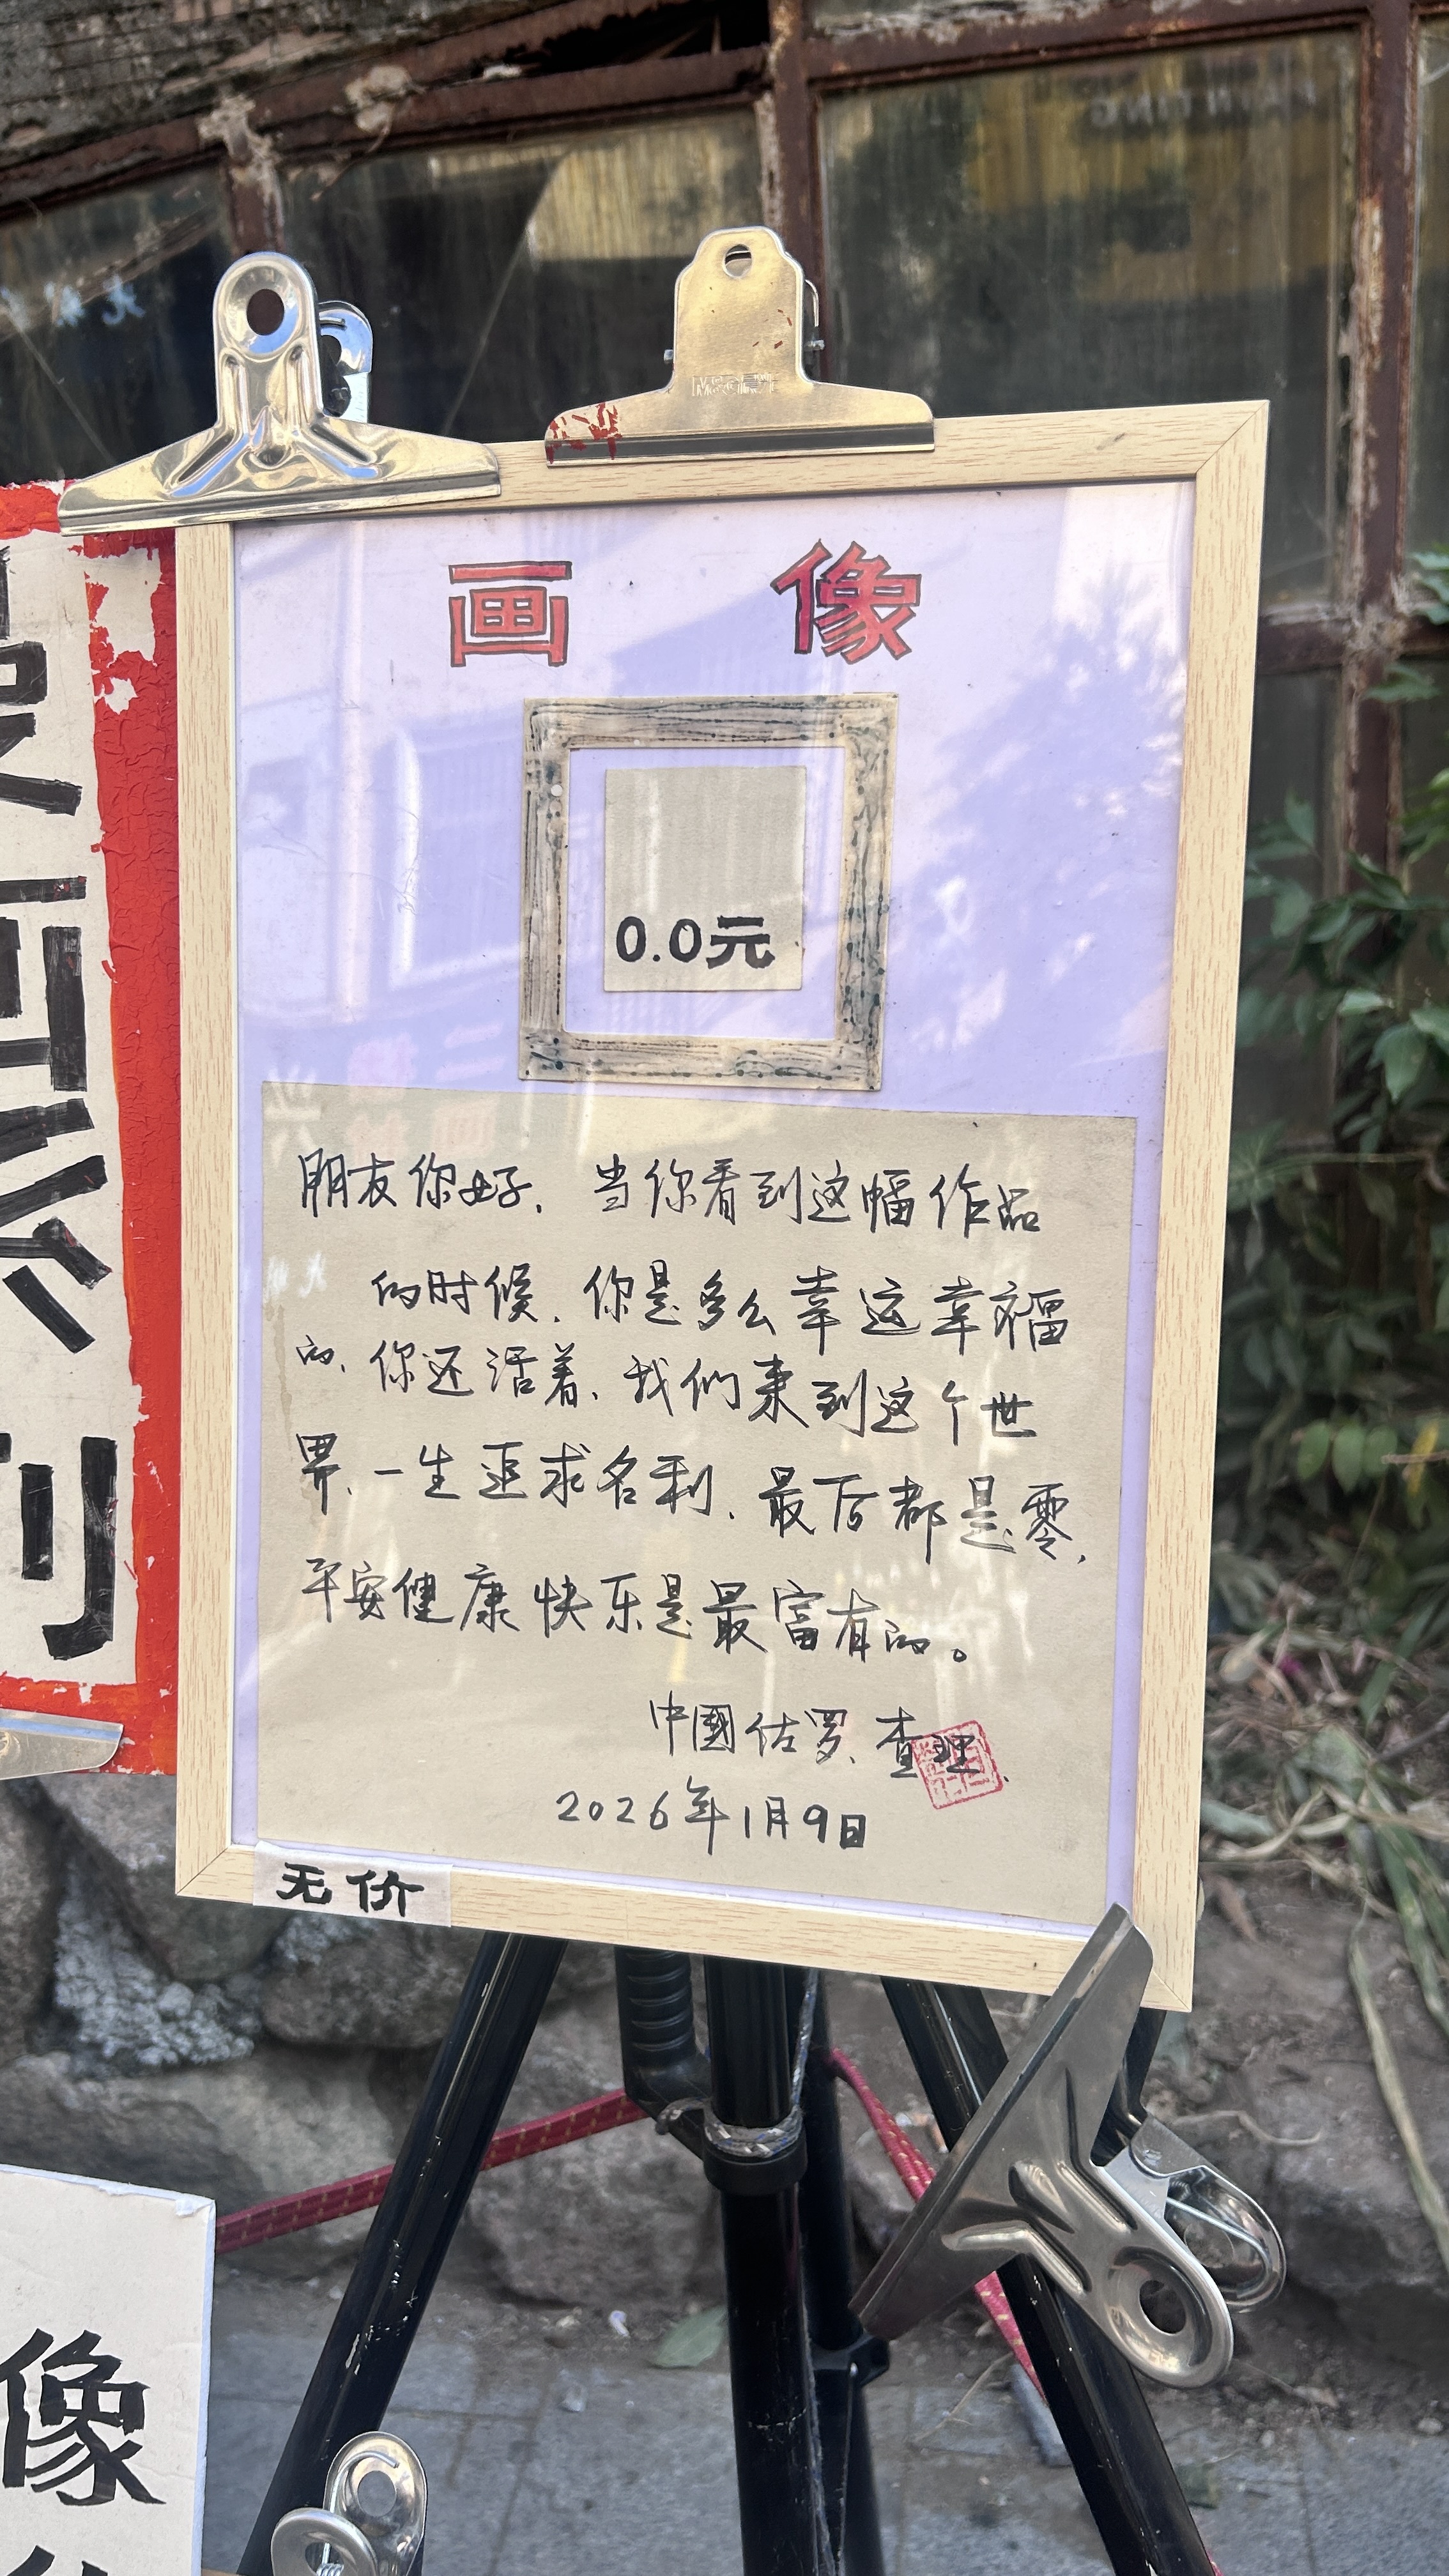 画 像
0.0元
朋友你好、当你看到这幅作品
的时候、你是多么幸运幸福
的、你还活着、我们来到这个世
界、一生追求名利、最后都是零、
平安健康快乐是最富有的。
中國佐罗、查理、
2026年1月9日
无价
像